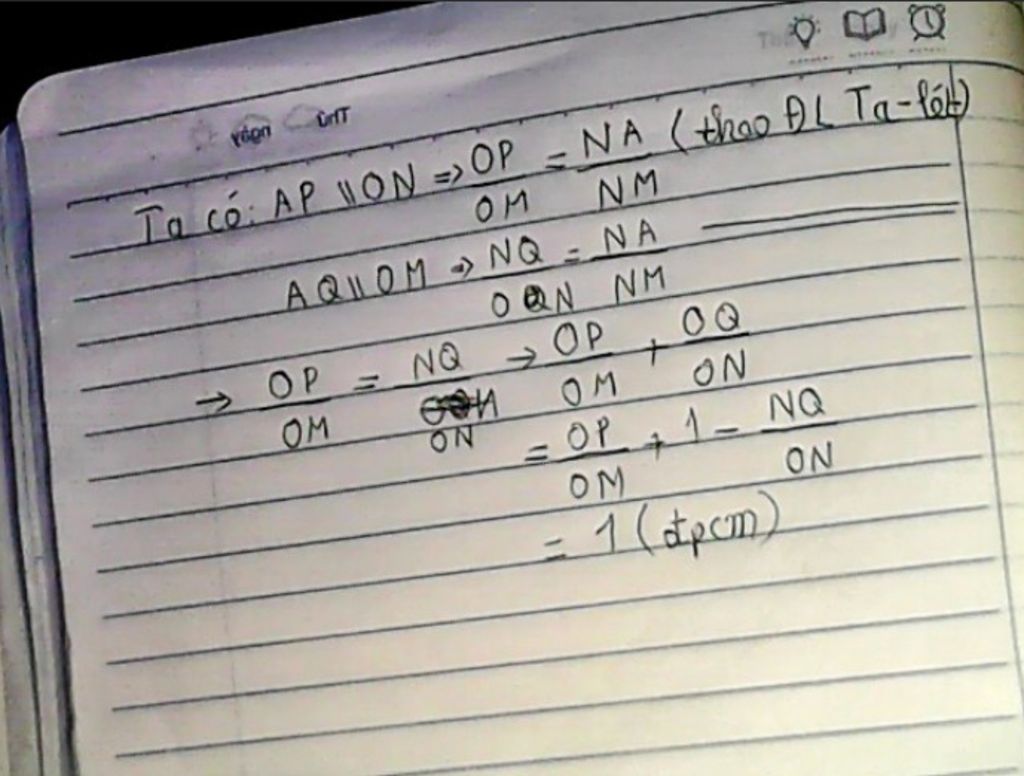 Ta có: AP \\ ON => OP/OM = NA/NM (theo ĐL Ta-lét)
AQ \\ OM => NQ/ON = NA/NM
→ OP/OM = NQ/ON → OP/OM + OQ/ON
= OP/OM + 1 - NQ/ON
= 1 (đpcm)